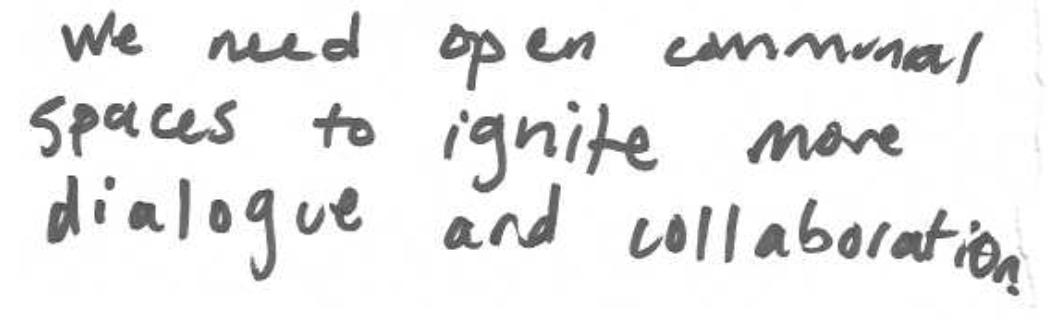 We need open communal
spaces to ignite more
dialogue and collaboration.